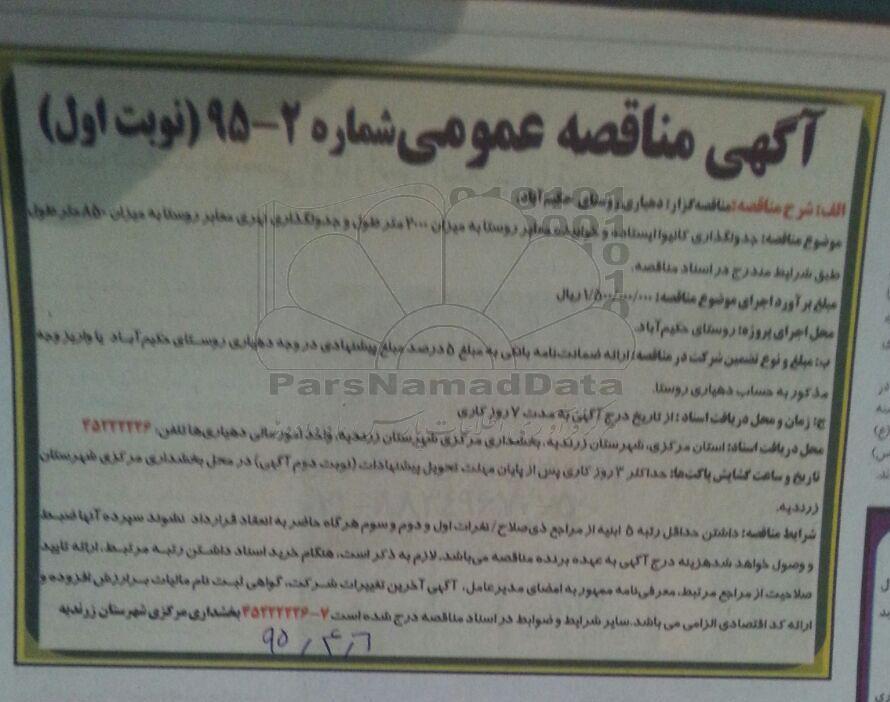 آگهی مناقصه عمومی شماره ۲-۹۵ (نوبت اول)
الف: شرح مناقصه: مناقصه‌گزار: دهیاری روستای حکیم‌آباد
موضوع مناقصه: جدولگذاری کانیوا ایستاده و خوابیده معابر روستا به میزان ۲۰۰۰ متر طول و جدولگذاری نهری معابر روستا به میزان ۸۵۰ متر طول
طبق شرایط مندرج در اسناد مناقصه.
مبلغ برآورد اجرای موضوع مناقصه: ۱/۵۰۰/۰۰۰/۰۰۰ ریال
محل اجرای پروژه: روستای حکیم‌آباد.
ب: مبلغ و نوع تضمین شرکت در مناقصه/ ارائه ضمانت‌نامه بانکی به مبلغ ۵ درصد مبلغ پیشنهادی در وجه دهیاری روستای حکیم‌آباد یا واریز وجه
مذکور به حساب دهیاری روستا.
ج: زمان و محل دریافت اسناد: از تاریخ درج آگهی به مدت ۷ روز کاری
محل دریافت اسناد: استان مرکزی، شهرستان زرندیه، بخشداری مرکزی شهرستان زرندیه، واحد امور مالی دهیاری‌ها تلفن: ۴۵۲۲۲۲۲۶
تاریخ و ساعت گشایش پاکت‌ها: حداکثر ۳ روز کاری پس از پایان مهلت تحویل پیشنهادات (نوبت دوم آگهی) در محل بخشداری مرکزی شهرستان
زرندیه.
شرایط مناقصه: داشتن حداقل رتبه ۵ ابنیه از مراجع ذی‌صلاح/ نفرات اول و دوم و سوم هرگاه حاضر به انعقاد قرارداد نشوند سپرده آنها ضبط
و وصول خواهد شد هزینه درج آگهی به عهده برنده مناقصه می‌باشد. لازم به ذکر است، هنگام خرید اسناد داشتن رتبه مرتبط، ارائه تایید
صلاحیت از مراجع مرتبط، معرفی‌نامه ممهور به امضای مدیرعامل، آگهی آخرین تغییرات شرکت، گواهی ثبت نام مالیات بر ارزش افزوده و
ارائه کد اقتصادی الزامی می باشد. سایر شرایط و ضوابط در اسناد مناقصه درج شده است ۷-۴۵۲۲۲۲۲۶ بخشداری مرکزی شهرستان زرندیه
۹۵/۴/۶
ParsNamadData